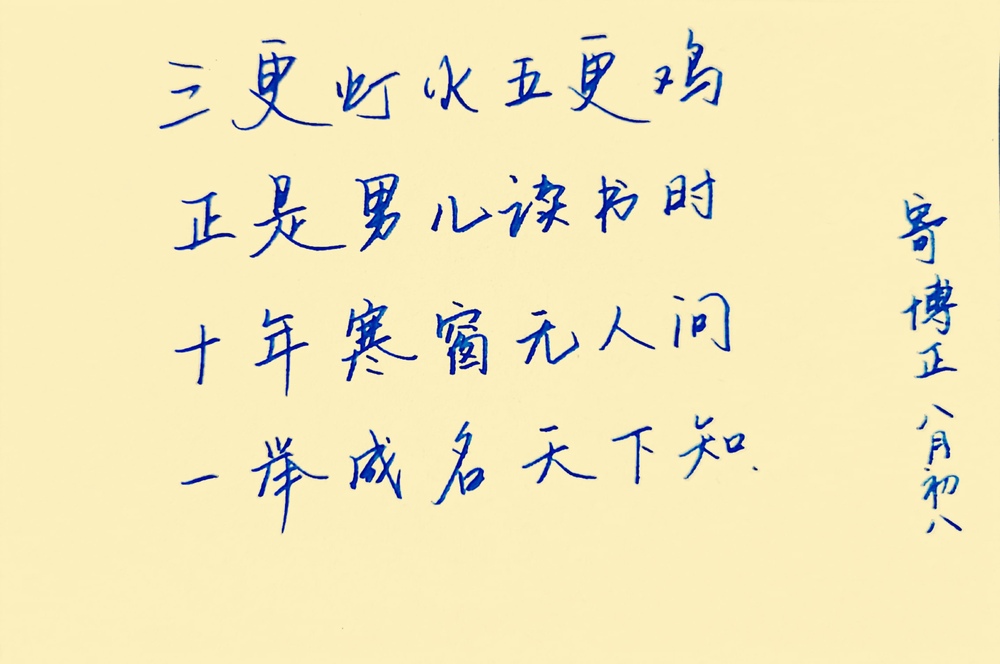 三更灯火五更鸡
正是男儿读书时
十年寒窗无人问
一举成名天下知.
寄博正八月初八